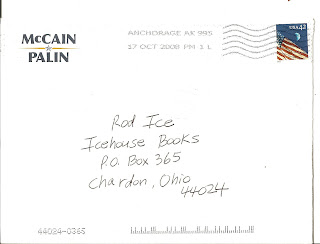 McCAIN
PALIN
ANCHORAGE AK 995
17 OCT 2008 PM 1 L
USA 42
Rod Ice
Icehouse Books
P.O. Box 365
Chardon, Ohio
44024
44024-0365